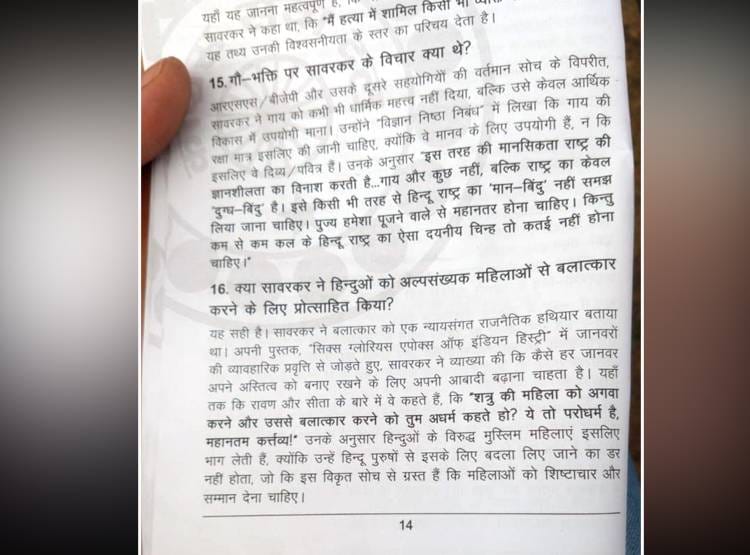 यहाँ यह जानना महत्वपूर्ण है, कि
सावरकर ने कहा था, कि "मैं हत्या में शामिल किसी भी
यह तथ्य उनकी विश्वसनीयता के स्तर का परिचय देता है।
15. गौ–भक्ति पर सावरकर के विचार क्या थे?
आरएसएस/बीजेपी और उसके दूसरे सहयोगियों की वर्तमान सोच के विपरीत,
सावरकर ने गाय को कभी भी धार्मिक महत्त्व नहीं दिया, बल्कि उसे केवल आर्थिक
विकास में उपयोगी माना। उन्होंने "विज्ञान निष्ठा निबंध" में लिखा कि गाय की
रक्षा मात्र इसलिए की जानी चाहिए, क्योंकि वे मानव के लिए उपयोगी हैं, न कि
इसलिए वे दिव्य/पवित्र हैं। उनके अनुसार "इस तरह की मानसिकता राष्ट्र की
ज्ञानशीलता का विनाश करती है...गाय और कुछ नहीं, बल्कि राष्ट्र का केवल
'दुग्ध–बिंदु' है। इसे किसी भी तरह से हिन्दू राष्ट्र का 'मान–बिंदु' नहीं समझ
लिया जाना चाहिए। पुज्य हमेशा पूजने वाले से महानतर होना चाहिए। किन्तु
कम से कम कल के हिन्दू राष्ट्र का ऐसा दयनीय चिन्ह तो कतई नहीं होना
चाहिए।"
16. क्या सावरकर ने हिन्दुओं को अल्पसंख्यक महिलाओं से बलात्कार
करने के लिए प्रोत्साहित किया?
यह सही है। सावरकर ने बलात्कार को एक न्यायसंगत राजनैतिक हथियार बताया
था। अपनी पुस्तक, "सिक्स ग्लोरियस एपोक्स ऑफ़ इंडियन हिस्ट्री" में जानवरों
की व्यावहारिक प्रवृत्ति से जोड़ते हुए, सावरकर ने व्याख्या की कि कैसे हर जानवर
अपने अस्तित्व को बनाए रखने के लिए अपनी आबादी बढ़ाना चाहता है। यहाँ
तक कि रावण और सीता के बारे में वे कहते हैं, कि "शत्रु की महिला को अगवा
करने और उससे बलात्कार करने को तुम अधर्म कहते हो? ये तो परोधर्म है,
महानतम कर्त्तव्य!" उनके अनुसार हिन्दुओं के विरुद्ध मुस्लिम महिलाएं इसलिए
भाग लेती हैं, क्योंकि उन्हें हिन्दू पुरुषों से इसके लिए बदला लिए जाने का डर
नहीं होता, जो कि इस विकृत सोच से ग्रस्त हैं कि महिलाओं को शिष्टाचार और
सम्मान देना चाहिए।
14